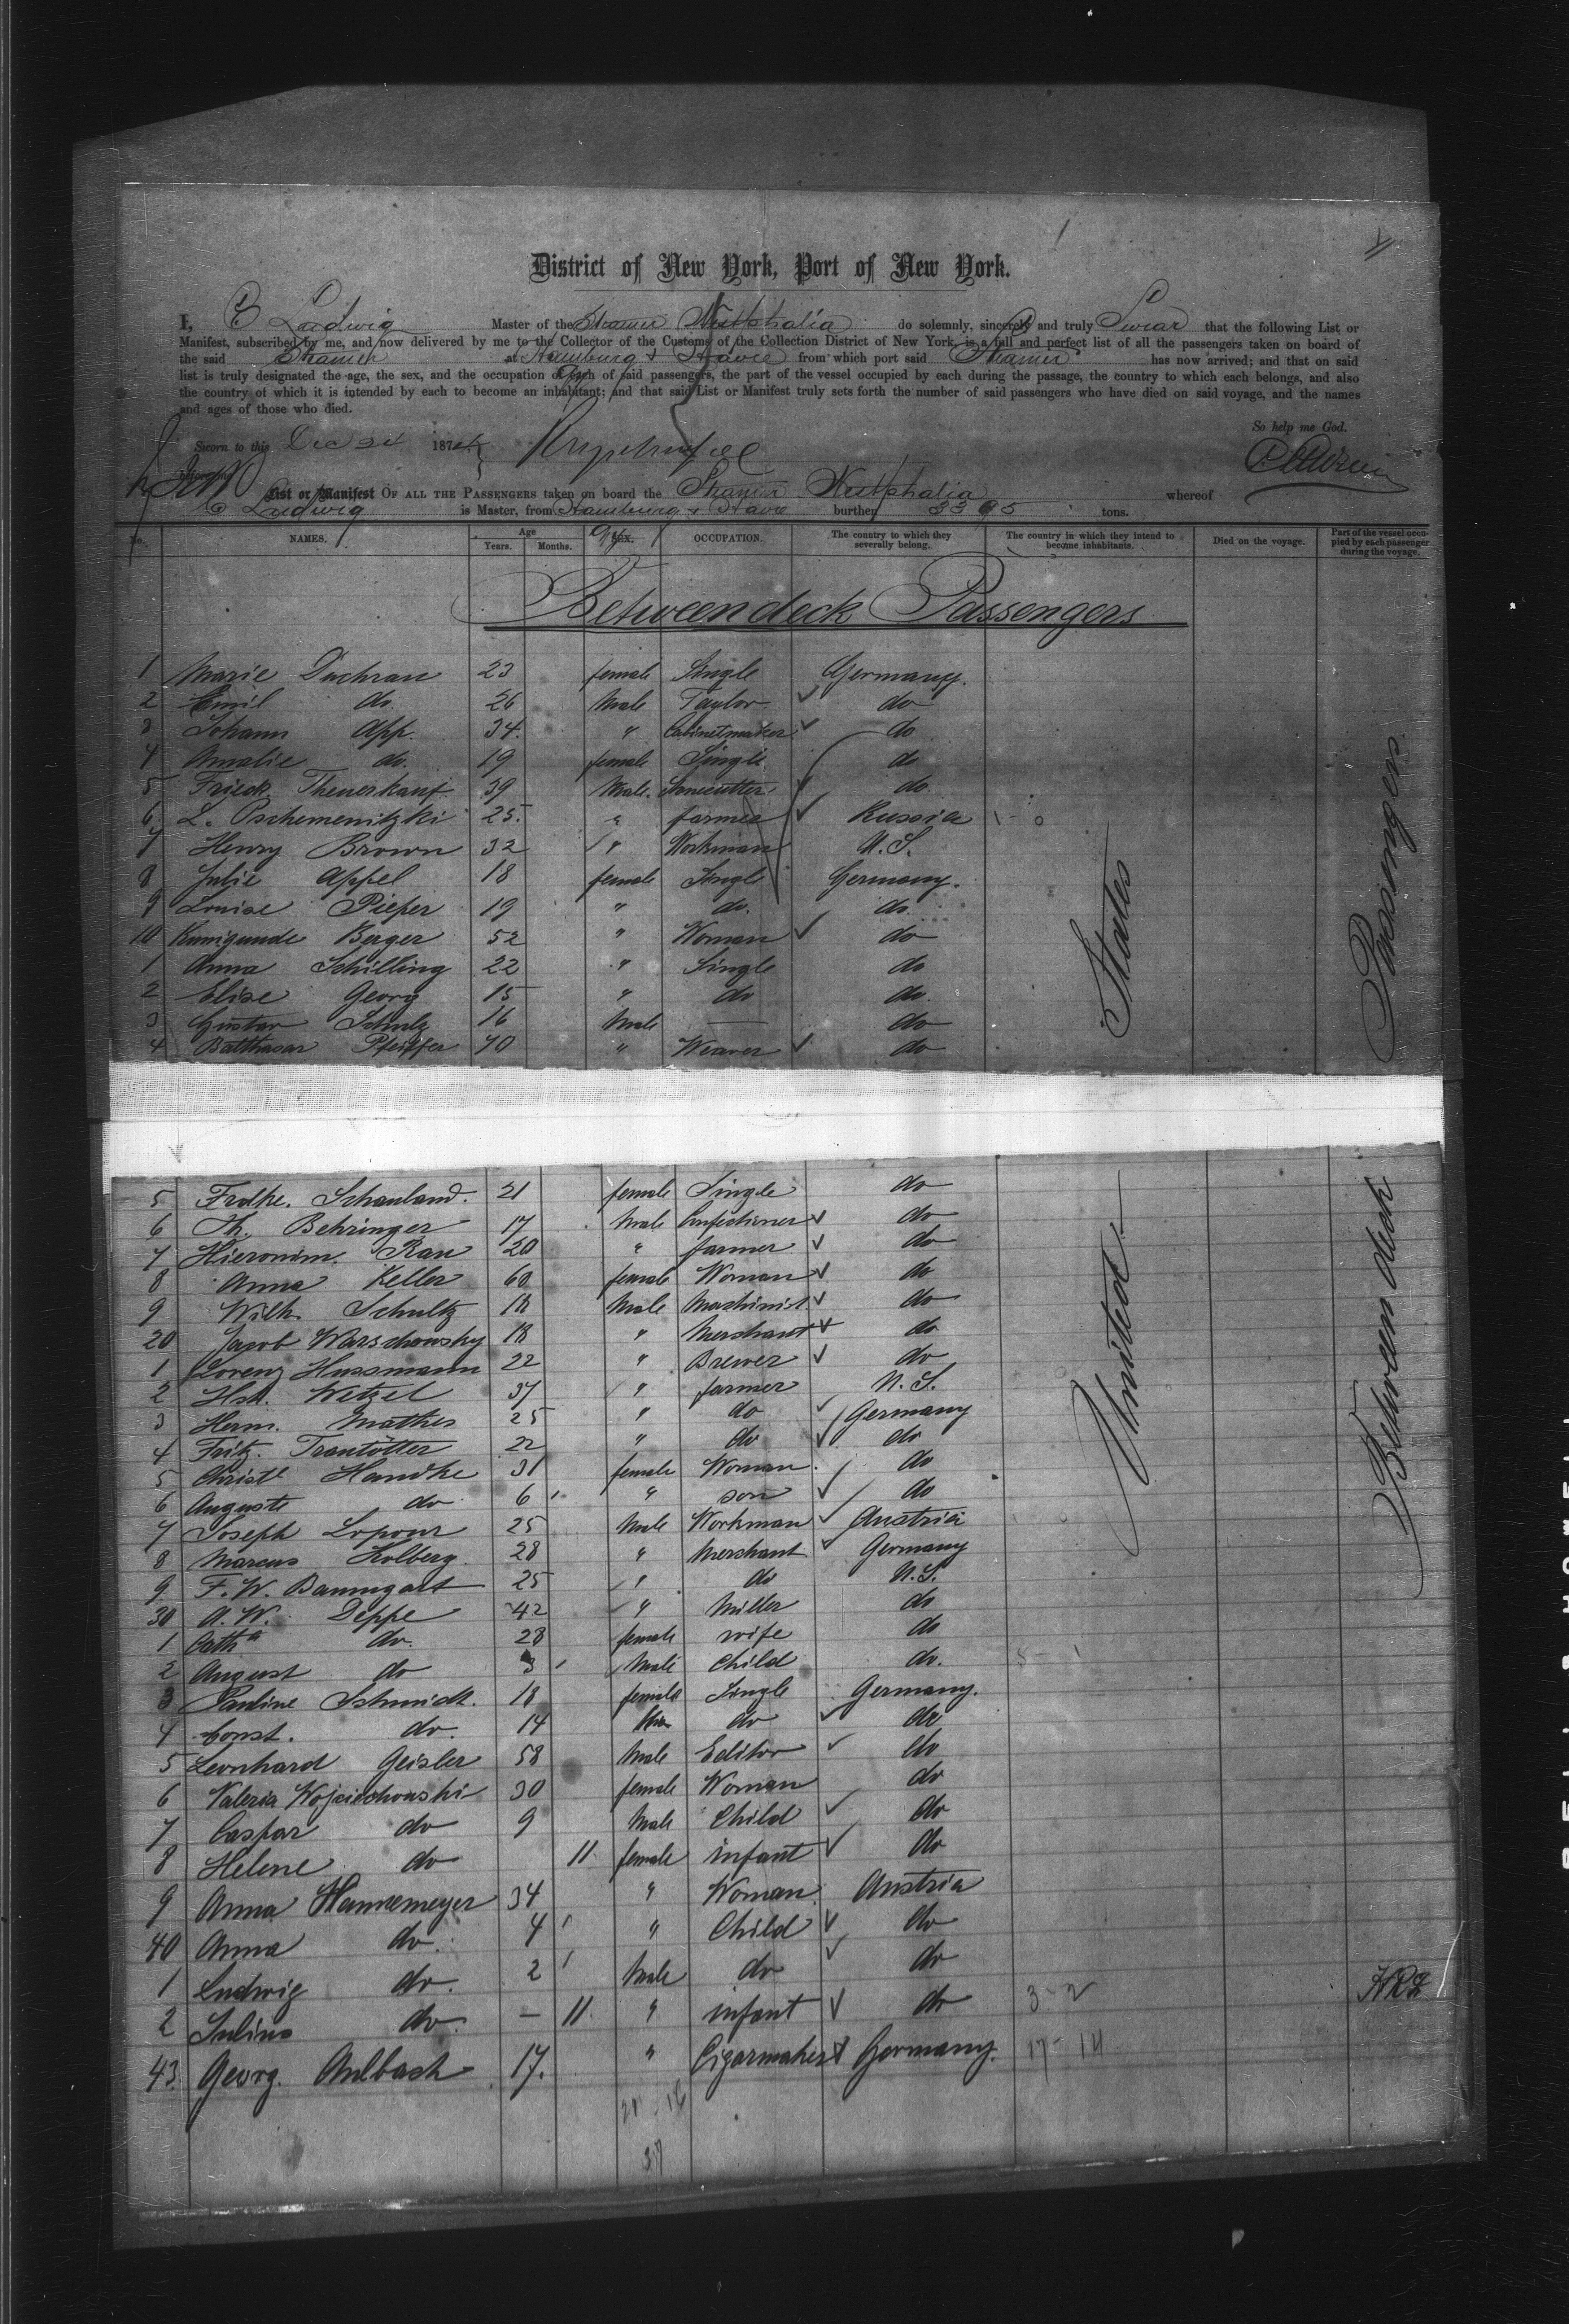 District of New York, Port of New York.
I, C Ludwig Master of the Steamer Westphalia do solemnly, sincerely and truly Swear that the following List or
Manifest, subscribed by me, and now delivered by me to the Collector of the Customs of the Collection District of New York, is a full and perfect list of all the passengers taken on board of
the said Steamer at Hamburg & Havre from which port said Steamer has now arrived; and that on said
list is truly designated the age, the sex, and the occupation of each of said passengers, the part of the vessel occupied by each during the passage, the country to which each belongs, and also
the country of which it is intended by each to become an inhabitant; and that said List or Manifest truly sets forth the number of said passengers who have died on said voyage, and the names
and ages of those who died.
So help me God.
Sworn to this Dec 24 1874
List or Manifest OF ALL THE PASSENGERS taken on board the Steamer Westphalia whereof
C Ludwig is Master, from Hamburg & Havre burthen 3395 tons.
No. NAMES. Age Years. Months. SEX. OCCUPATION. The country to which they severally belong. The country in which they intend to become inhabitants. Died on the voyage. Part of the vessel occupied by each passenger during the voyage.
Between deck Passengers
1 Marie Duchran 23 female Single Germany.
2 Emil do. 26 Male Taylor do
3 Johann App. 34. " Cabinetmaker do
4 Amalie do. 19 female Single do
5 Friedr. Theuerkauf 39 Male. Stonecutter do.
6. L. Pschemenitzki 25. " farmer Russia
7 Henry Brown 32 " Workman U. S.
8 Julie Appel 18 female Single Germany.
9 Louise Pieper 19 " do. do.
10 Kunigunde Berger 52 " Woman do
1 Anna Schilling 22 " Single do
2 Elise Georg 15 " do do.
3 Gustav Schulz 16 Male — do
4 Balthasar Pfeiffer 40 " Weaver do
5 Frdke. Schauland. 21 female Single do
6 Th. Behringer 17 Male Confectioner do
7 Hieronim. Rau 20 " farmer do
8 Anna Keller 60 female Woman do
9 Wilh. Schultz 18 Male Mashinist do
20 Jacob Warschowsky 18 " Merchant do
1 Lorenz Hussmann 22 " Brewer do
2 Hch. Wetzel 37 " farmer U. S.
3 Herm. Mathes 25 " do Germany
4 Fritz. Trautötter 22 " do do
5 Christl Handke 31 female Woman. do
6 Auguste do 6 " son do
7 Joseph Lopour 25 Male Workman Austria
8 Marcus Kolberg. 28 " Merchant Germany
9 F. W. Baumgart 25 " do U. S.
30 A. W. Deppe 42 " Miller do
1 Catha do. 28 female wife do
2 August do 3 Male Child do.
3 Pauline Schmidt. 18 female Single Germany.
4 Const. do. 14 do do
5 Leonhard Geisler 58 Male Editor do
6 Valeria Wojciechowski 30 female Woman do
7 Caspar do 9 Male Child do
8 Helene do 11 female infant do
9 Anna Hannemeyer 34 " Woman Austria
40 Anna do. 4 " Child do
1 Ludwig do. 2 Male do do
2 Julius do. — 11. " infant do
43. Georg. Aulbach 17. " Cigarmaker Germany.
United States
Between deck Passengers